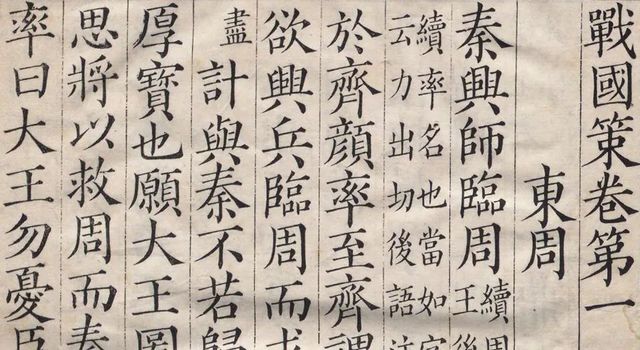 戰國策卷第一
東周
秦興師臨周
續周
王後
續率名也當如字
云力出切後語
於齊顔率至齊謂
欲興兵臨周而求
盡計與秦不若歸
厚寶也願大王圖
思將以救周而秦
率曰大王勿憂臣